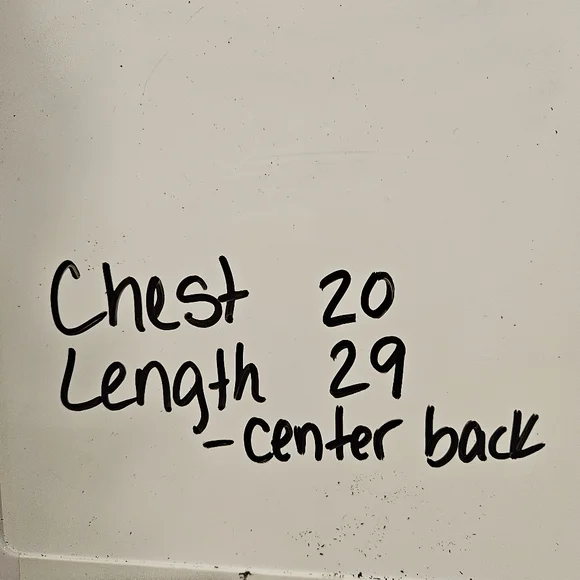 Chest 20
Length 29
- center back